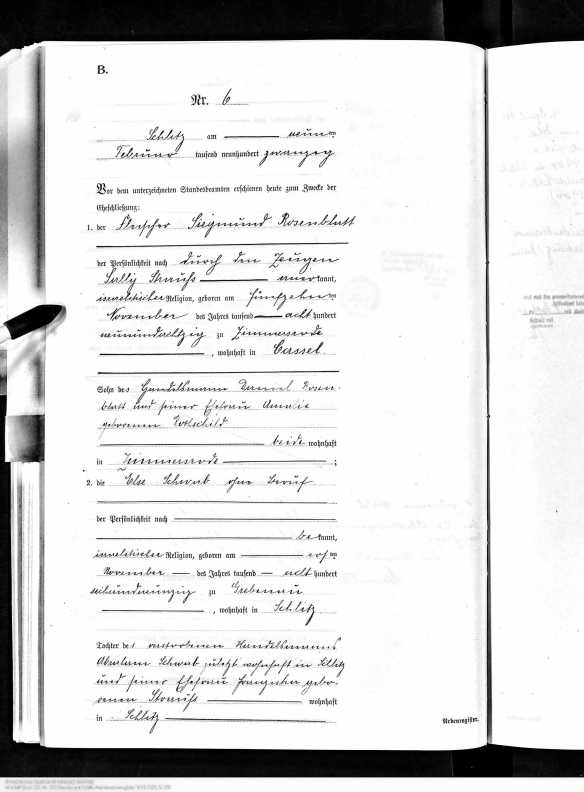 B.
Nr. 6
Schlitz am neunten
Februar tausend neunhundert zwanzig
Vor dem unterzeichneten Standesbeamten erschienen heute zum Zwecke der
Eheschließung:
1. der Fleischer Siegmund Rosenblatt
der Persönlichkeit nach durch den Zeugen
Sally Strauss anerkannt,
israelitischer Religion, geboren am fünfzehnten
November des Jahres tausend acht hundert
neunundachtzig zu Zimmersrode
, wohnhaft in Cassel
Sohn des Handelsmann Daniel Rosen-
blatt und seiner Ehefrau Amalie
geborenen Rotschild
beide wohnhaft
in Zimmersrode ;
2. die Else Schwab ohne Beruf
der Persönlichkeit nach
bekannt,
israelitischer Religion, geboren am
November des Jahres tausend acht hundert
zu Grebenau
, wohnhaft in Schlitz
Tochter des verstorbenen Handelsmanns
Abraham Schwab zuletzt wohnhaft in Schlitz
und seiner Ehefrau gebo-
renen Strauss wohnhaft
in Schlitz
Nebenregister.